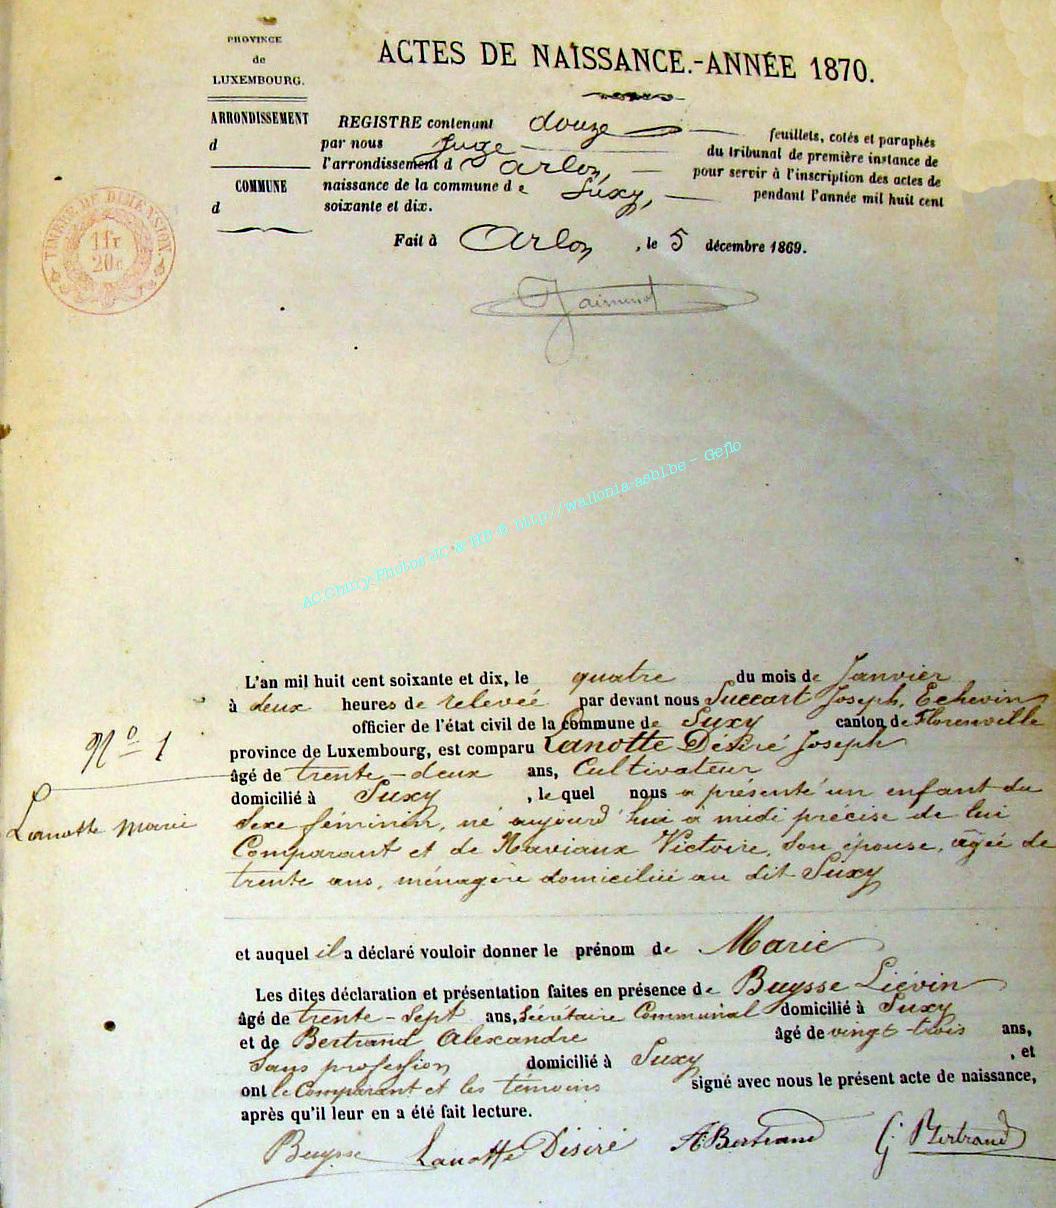 PROVINCE
de
LUXEMBOURG.
ACTES DE NAISSANCE.-ANNÉE 1870.
ARRONDISSEMENT
d
COMMUNE
d
REGISTRE contenant douze feuillets, cotés et paraphés
par nous Juge du tribunal de première instance de
l'arrondissement d'Arlon, pour servir à l'inscription des actes de
naissance de la commune de Suxy, pendant l'année mil huit cent
soixante et dix.
Fait à Arlon, le 5 décembre 1869.
TIMBRE DE DIMENSION
1fr
20c
AC Chiny Photos JC & HD-B http://wallonia-asbl.be - Geflo
L'an mil huit cent soixante et dix, le quatre du mois de Janvier
à deux heures de relevée par devant nous Succart Joseph, Echevin
officier de l'état civil de la Commune de Suxy canton de Florenville
Nº 1
province de Luxembourg, est comparu Lanotte Désiré Joseph
âgé de trente-deux ans, Cultivateur
domicilié à Suxy, lequel nous a présenté un enfant du
Lanotte Marie
Sexe féminin, né aujourd'hui a midi précise de lui
Comparant et de Naviaux Victoire, Son épouse, âgée de
trente ans, ménagère domiciliée au dit Suxy
et auquel il a déclaré vouloir donner le prénom de Marie
Les dites déclaration et présentation faites en présence de Buysse Liévin
âgé de trente-Sept ans, Secrétaire Communal domicilié à Suxy
et de Bertrand Alexandre âgé de vingt-trois ans,
Sans profession domicilié à Suxy, et
ont le Comparant et les témoins signé avec nous le présent acte de naissance,
après qu'il leur en a été fait lecture.
Buysse Lanotte Désiré A Bertrand J. Bertrand